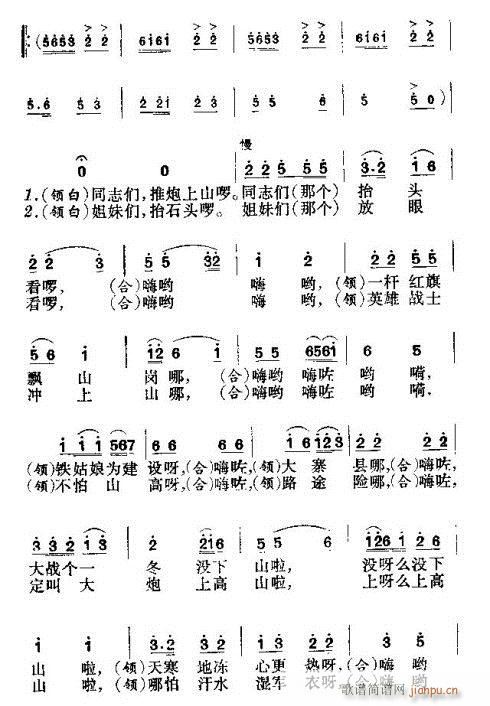 (5653 2 2 6161 6161 2 2 2 2 6161 2 2
5.6 5 3 2 2 2 1 2 3 5 5 6 1 5 5 0)
慢
0 0 2 2 5 5 5 3.2 1 6
1.(领白)同志们,推炮上山啰。同志们(那个)抬头
2.(领白)姐妹们,抬石头啰。姐妹们(那个)放眼
2 2 3 5 5 32 1 2 2 3 5 5
看啰,(合)嗨哟嗨哟,(领)一杆红旗
看啰,(合)嗨哟嗨哟,(领)英雄战士
5 6 1 12 6 1 5 5 6561 5 5
飘山岗哪,(合)嗨哟嗨咗哟嗬,
冲上山哪,(合)嗨哟嗨咗哟嗬,
1 1 1 567 6 6 6 6 1 6 123 2 2 2 2
(领)铁姑娘为建设呀,(合)嗨咗,(领)大寨县哪,(合)嗨咗,
(领)不怕山高呀,(合)嗨咗,(领)路途险哪,(合)嗨咗,
3 3 3 2 1 3 2 216 5 5 126 1 2
大战个一冬没下山啦,没呀么没下
定叫大炮上高山啦,上呀么上高
1 1 3.2 3.2 1 3 2 2 5 5
山啦,(领)天寒地冻心更热呀,(合)嗨哟
山啦,(领)哪怕汗水湿军衣呀,(合)嗨哟
歌谱简谱网 jianpu.cn